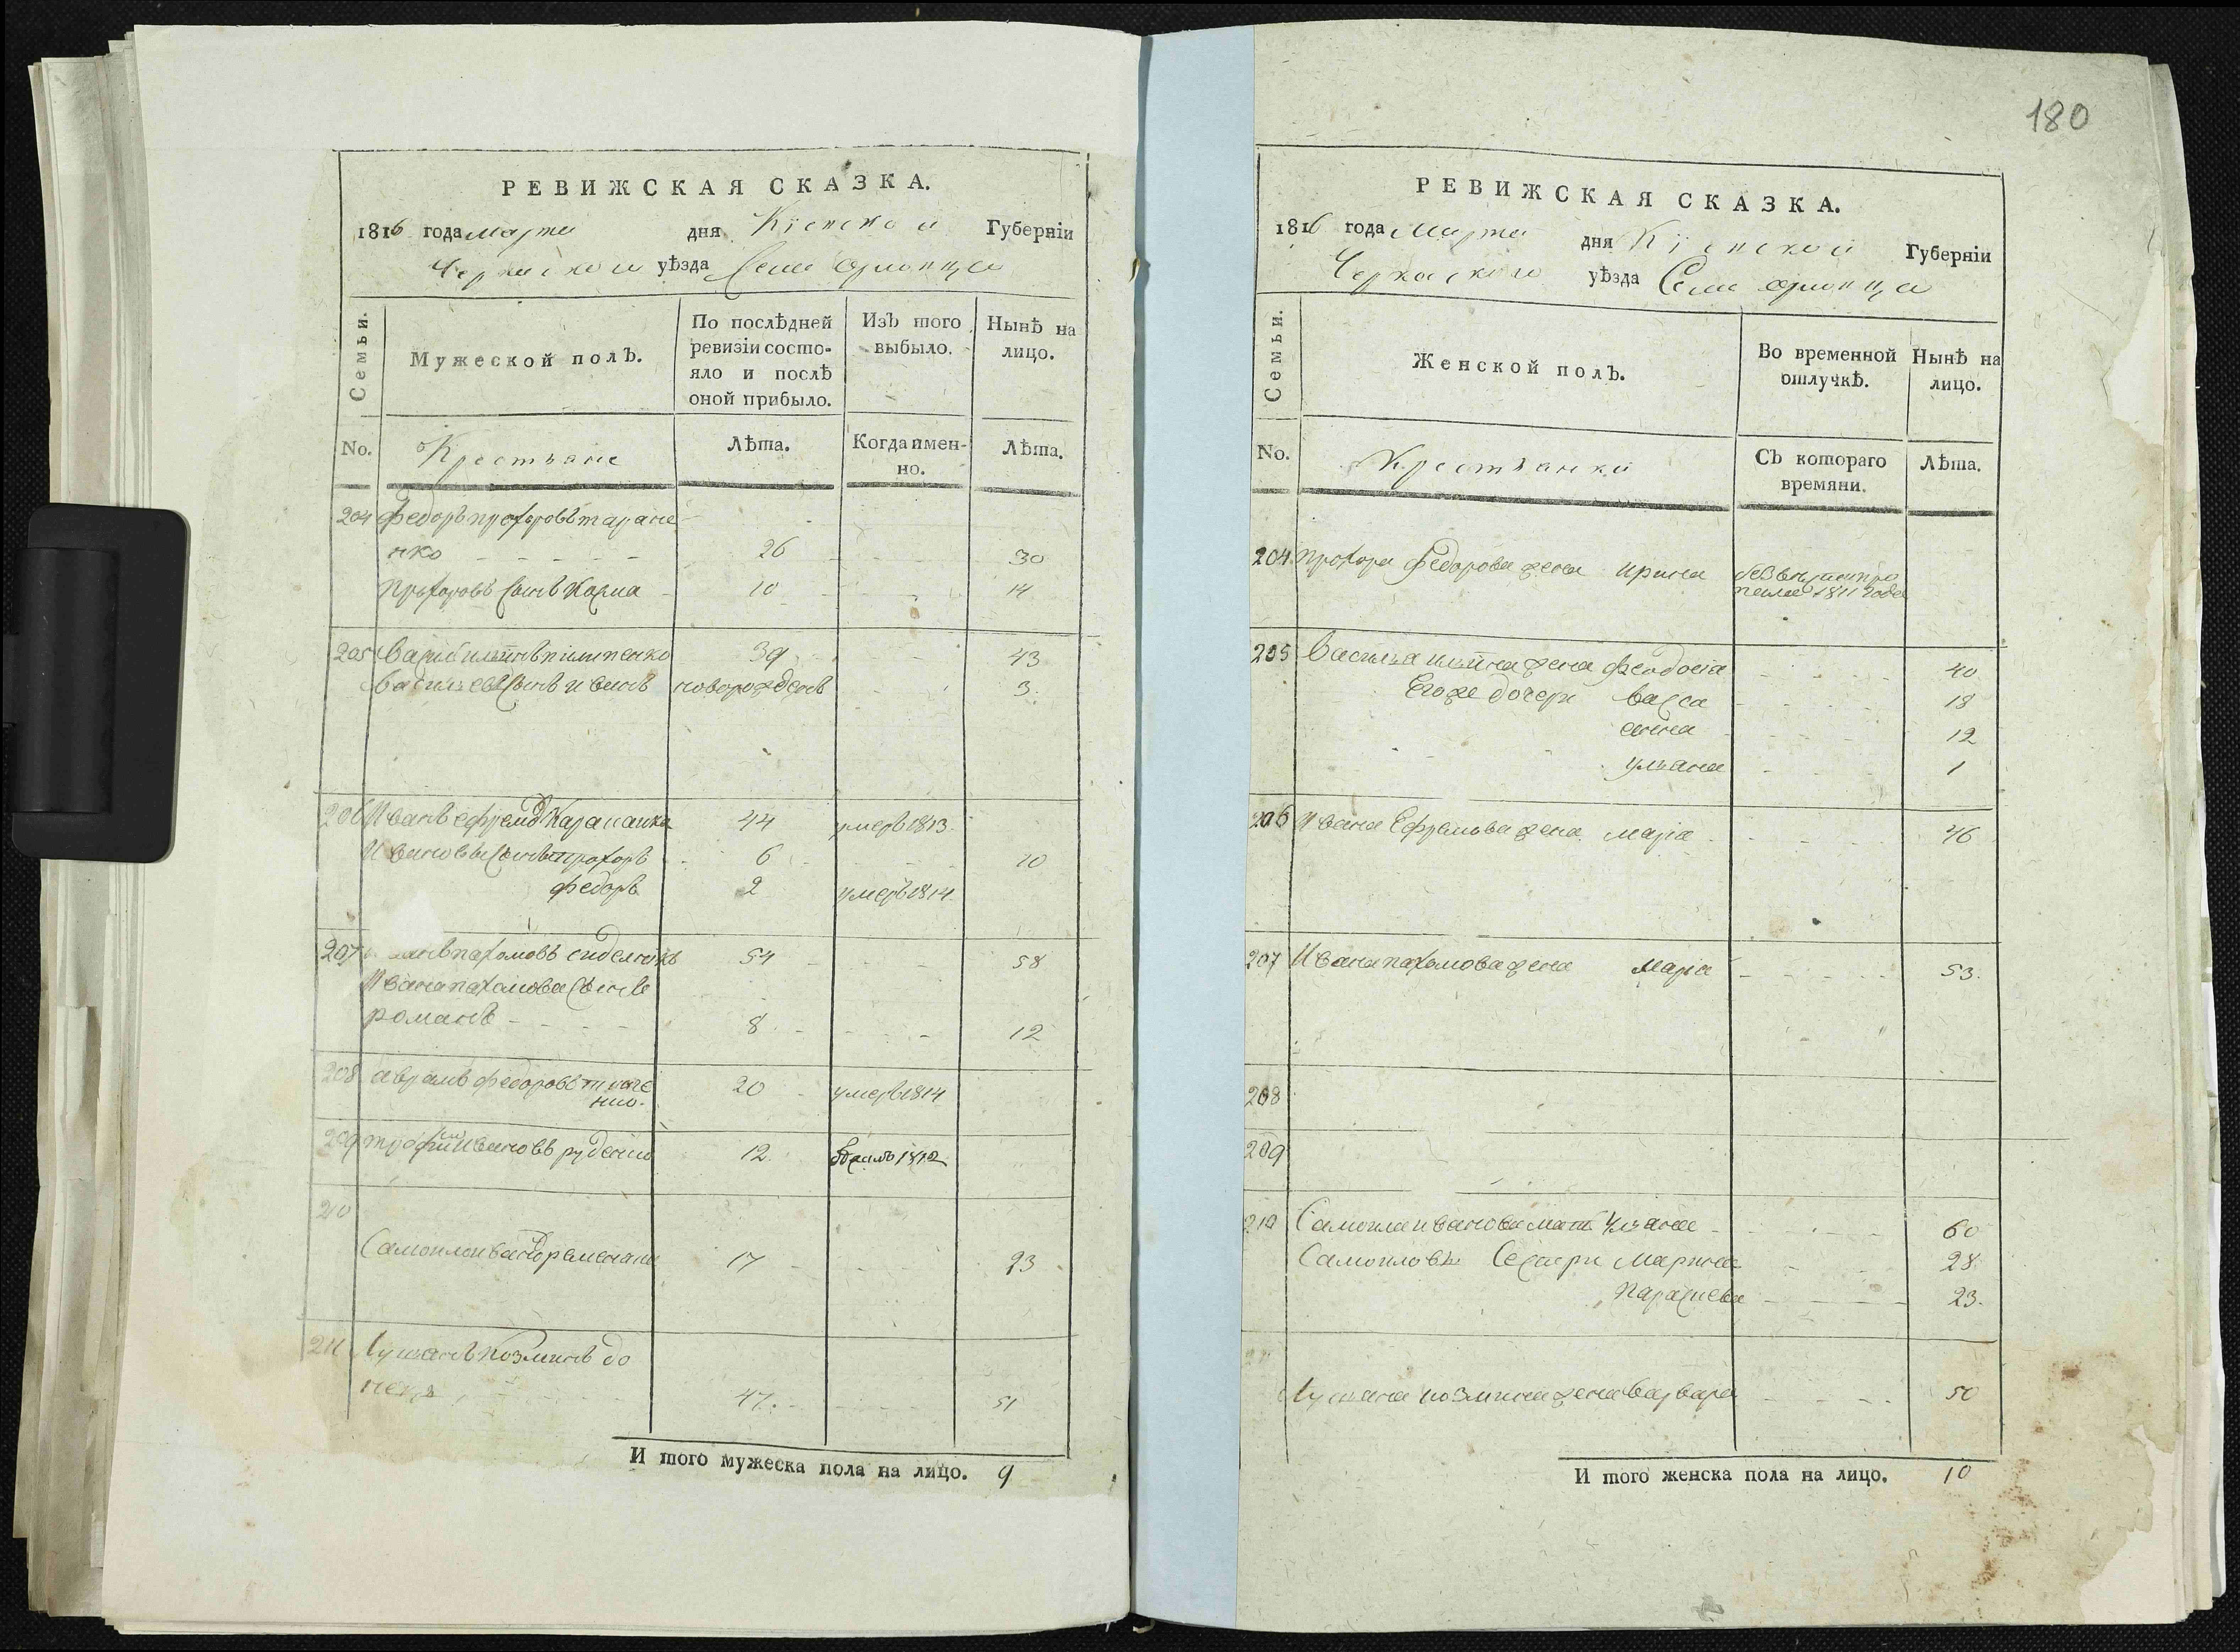 180
РЕВИЖСКАЯ СКАЗКА.
1816 года марта дня Кіевской Губерніи
Черкаского уѣзда Села орловца
Семьи.
Мужеской полъ.
По послѣдней ревизіи состо-
яло и послѣ
оной прибыло.
Изъ того выбыло.
Нынѣ на лицо.
No. Крестьяне Лѣта. Когда имен-
но. Лѣта.
204 Федоръ прохоровъ таране
нко 26 30
Прохоровъ сынъ Козма 10 14
205 Василь 39 43
Васильевъ сынъ иванъ новорожденъ 3.
206 Иванъ ефремовъ 44 умеръ 1813.
Ивановы сыновья прохоръ 6 10
федоръ 2 умеръ 1814
207 пахомовъ 54 58
Ивана пахомова сынъ
романъ 8 12
208 аврамъ федоровъ 20 умеръ 1814
209 трофимъ Ивановъ руденко 12 1812
210
Самоило ивановъ 17 23
211 Лукианъ Козминъ до
нецъ 47. 51
И того мужеска пола на лицо. 9
РЕВИЖСКАЯ СКАЗКА.
1816 года Марта дня Кіевской Губерніи
Черкаского уѣзда Села орловца
Семьи.
Женской полъ.
Во временной отлучкѣ.
Нынѣ на лицо.
No. Крестьянки Съ котораго
времяни. Лѣта.
204 прохора федорова жена ирина без вести про
пала 1811 года
205 Василья жена феодосіа 40
Егоже дочери васса 18
анна 12
ульяна 1
206 Ивана Ефремова жена маріа 46
207 Ивана пахомова жена маріа 53.
208
209
210 Самоила иванова мать Ульяна 60
Самоиловы Сестри Марина 28
параскева 23.
211
Лукиана козмина жена варвара 50
И того женска пола на лицо. 10